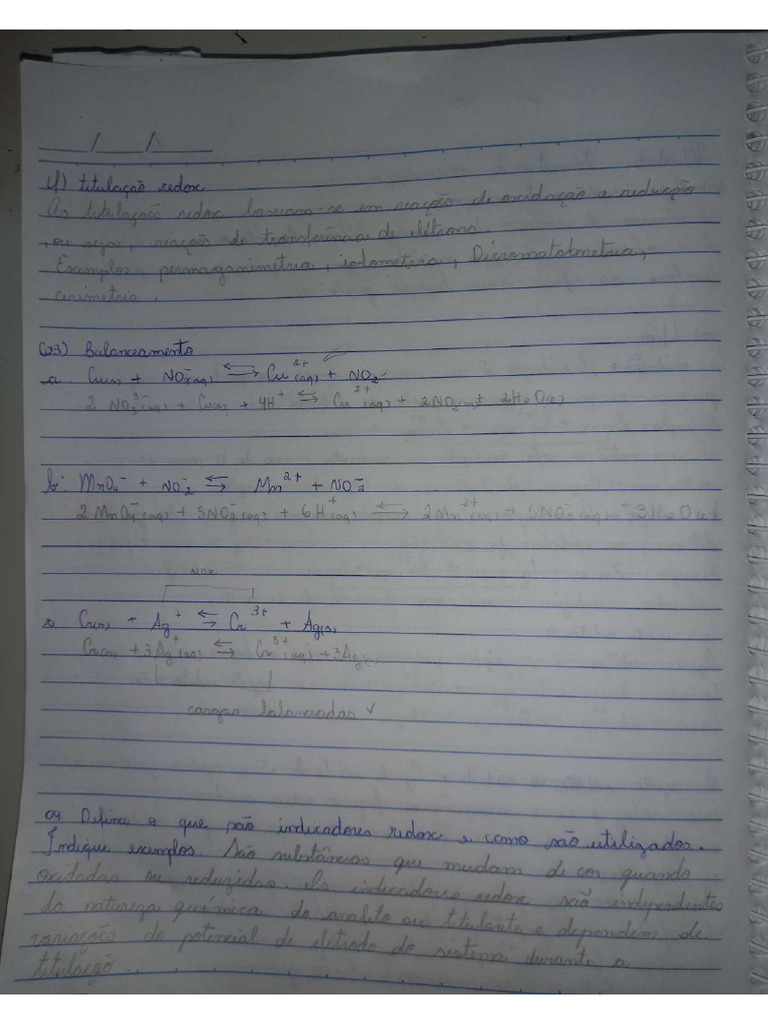 __/__/__
4) titulação redox
As titulação redox baseiam-se em reação de oxidação e redução
ou seja, reações de transferência de elétrons
Exemplos: permaganimétria, iodometria, Dicromatobmetria,
cerimetria.
03) Balanceamento
a. Cu(s) + NO₃⁻(aq) ⇌ Cu²⁺(aq) + NO₂⁻
2 NO₃⁻(aq) + Cu(s) + 4H⁺ ⇌ Cu²⁺(aq) + 2NO₂(aq) + 2H₂O(l)
b: MnO₄⁻ + NO₂⁻ ⇌ Mn²⁺ + NO₃⁻
2 MnO₄⁻(aq) + 5NO₂⁻(aq) + 6H⁺(aq) ⇌ 2Mn²⁺(aq) + 5NO₃⁻(aq) + 3H₂O(l)
NOX
Cr(s) + Ag⁺ ⇌ Cr³⁺ + Ag(s)
Cr(s) + 3Ag⁺(aq) ⇌ Cr³⁺(aq) + 3Ag(s)
cargas balanceadas ✓
04 Defina o que são indicadores redox e como são utilizados.
Indique exemplos. São substâncias que mudam de cor quando
oxidadas ou reduzidas. Os indicadores redox são independentes
da natureza química do analito ou titulante e dependem de
variações do potencial de eletrodo do sistema durante a
titulação.